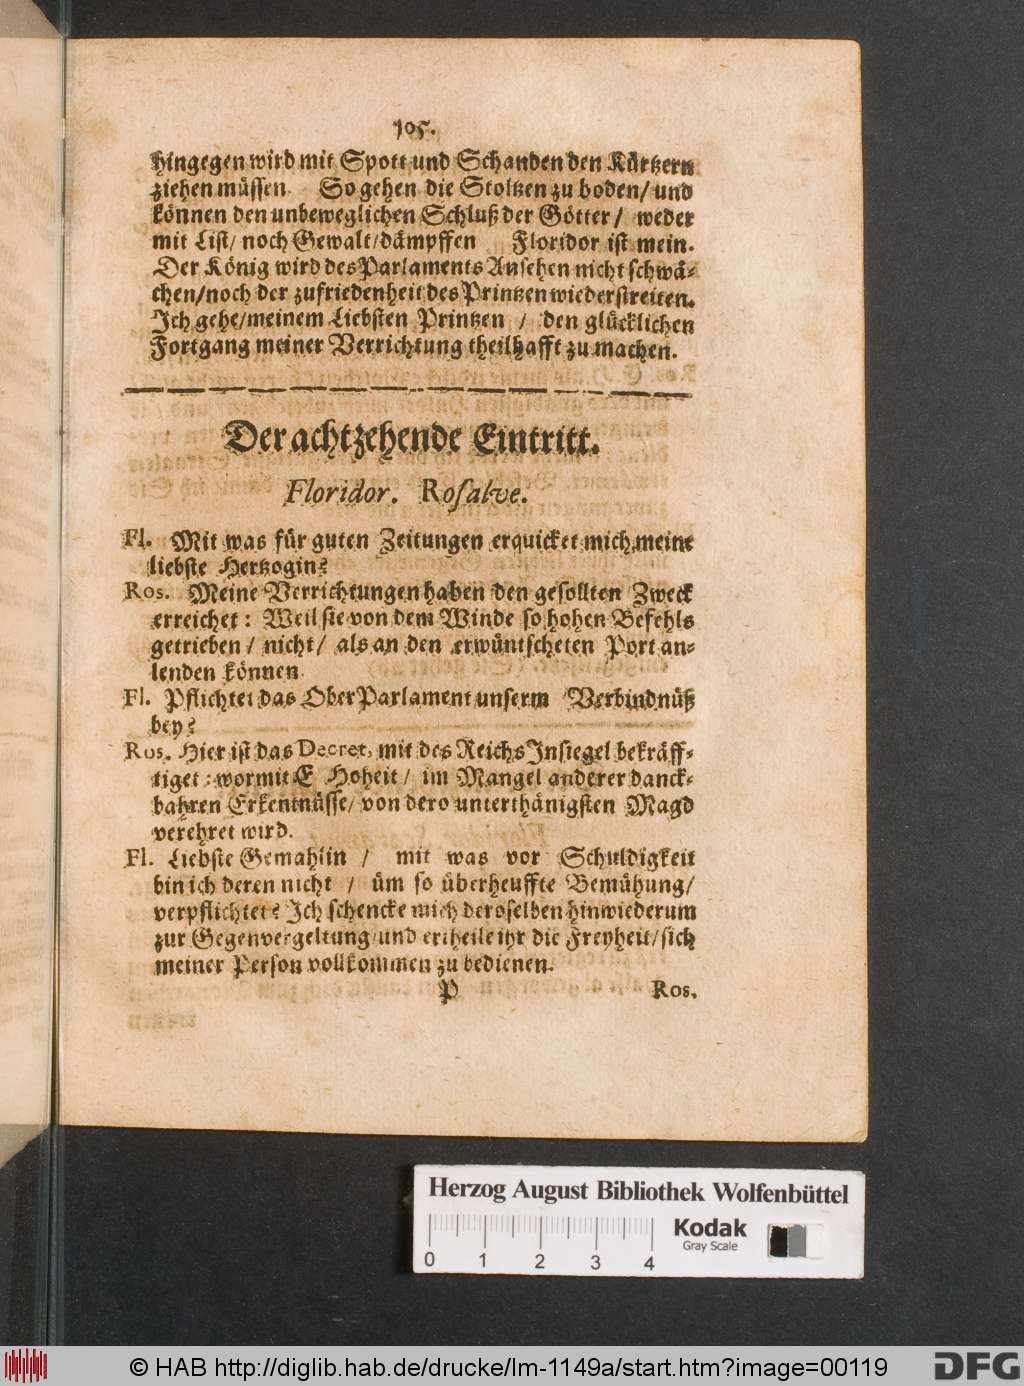 105.
hingegen wird mit Spott und Schanden den Kürtzern
ziehen müssen. So gehen die Stoltzen zu boden/ und
können den unbeweglichen Schluß der Götter/ weder
mit List/ noch Gewalt/ dämpffen Floridor ist mein.
Der König wird des Parlaments Ansehen nicht schwä-
chen/ noch der zufriedenheit des Printzen wiederstreiten.
Ich gehe/ meinem Liebsten Printzen / den glücklichen
Fortgang meiner Verrichtung theilhafft zu machen.
Der achtzehende Eintritt.
Floridor. Rosalve.
Fl. Mit was für guten Zeitungen erquicket mich meine
liebste Hertzogin?
Ros. Meine Verrichtungen haben den gesollten Zweck
erreichet: Weil sie von dem Winde so hohen Befehls
getrieben/ nicht/ als an den erwüntscheten Port an-
lenden können.
Fl. Pflichtet das Ober Parlament unserm Verbindnüß
bey?
Ros. Hier ist das Decret, mit des Reichs Insiegel bekräff-
tiget: wormit E Hoheit/ im Mangel anderer danck-
bahren Erkentnüsse/ von dero unterthänigsten Magd
verehret wird.
Fl. Liebste Gemahlin / mit was vor Schuldigkeit
bin ich deren nicht / üm so überheuffte Bemühung/
verpflichtet? Ich schencke mich deroselben hinwiederum
zur Gegenvergeltung/ und ertheile ihr die Freyheit/ sich
meiner Person vollkommen zu bedienen.
P Ros.
Herzog August Bibliothek Wolfenbüttel
Kodak
Gray Scale
0 1 2 3 4
© HAB http://diglib.hab.de/drucke/lm-1149a/start.htm?image=00119
DFG